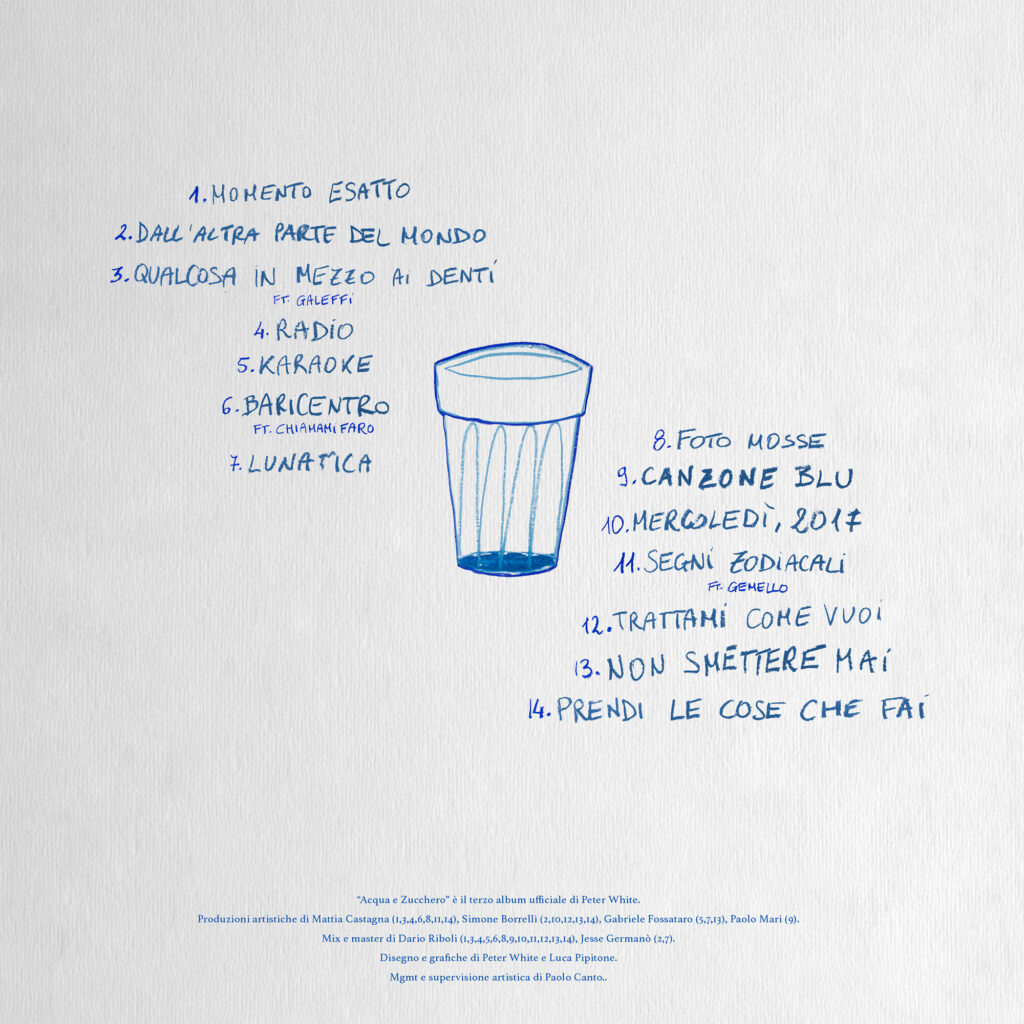 1. MOMENTO ESATTO
2. DALL'ALTRA PARTE DEL MONDO
3. QUALCOSA IN MEZZO AI DENTI
FT. GALEFFI
4. RADIO
5. KARAOKE
6. BARICENTRO
FT. CHIAMAMIFARO
7. LUNATICA
8. FOTO MOSSE
9. CANZONE BLU
10. MERCOLEDÌ, 2017
11. SEGNI ZODIACALI
FT. GEMELLO
12. TRATTAMI COME VUOI
13. NON SMETTERE MAI
14. PRENDI LE COSE CHE FAI
“Acqua e Zucchero” è il terzo album ufficiale di Peter White.
Produzioni artistiche di Mattia Castagna (1,3,4,6,8,11,14), Simone Borrelli (2,10,12,13,14), Gabriele Fossataro (5,7,13), Paolo Mari (9).
Mix e master di Dario Riboli (1,3,4,5,6,8,9,10,11,12,13,14), Jesse Germanò (2,7).
Disegno e grafiche di Peter White e Luca Pipitone.
Mgmt e supervisione artistica di Paolo Canto..